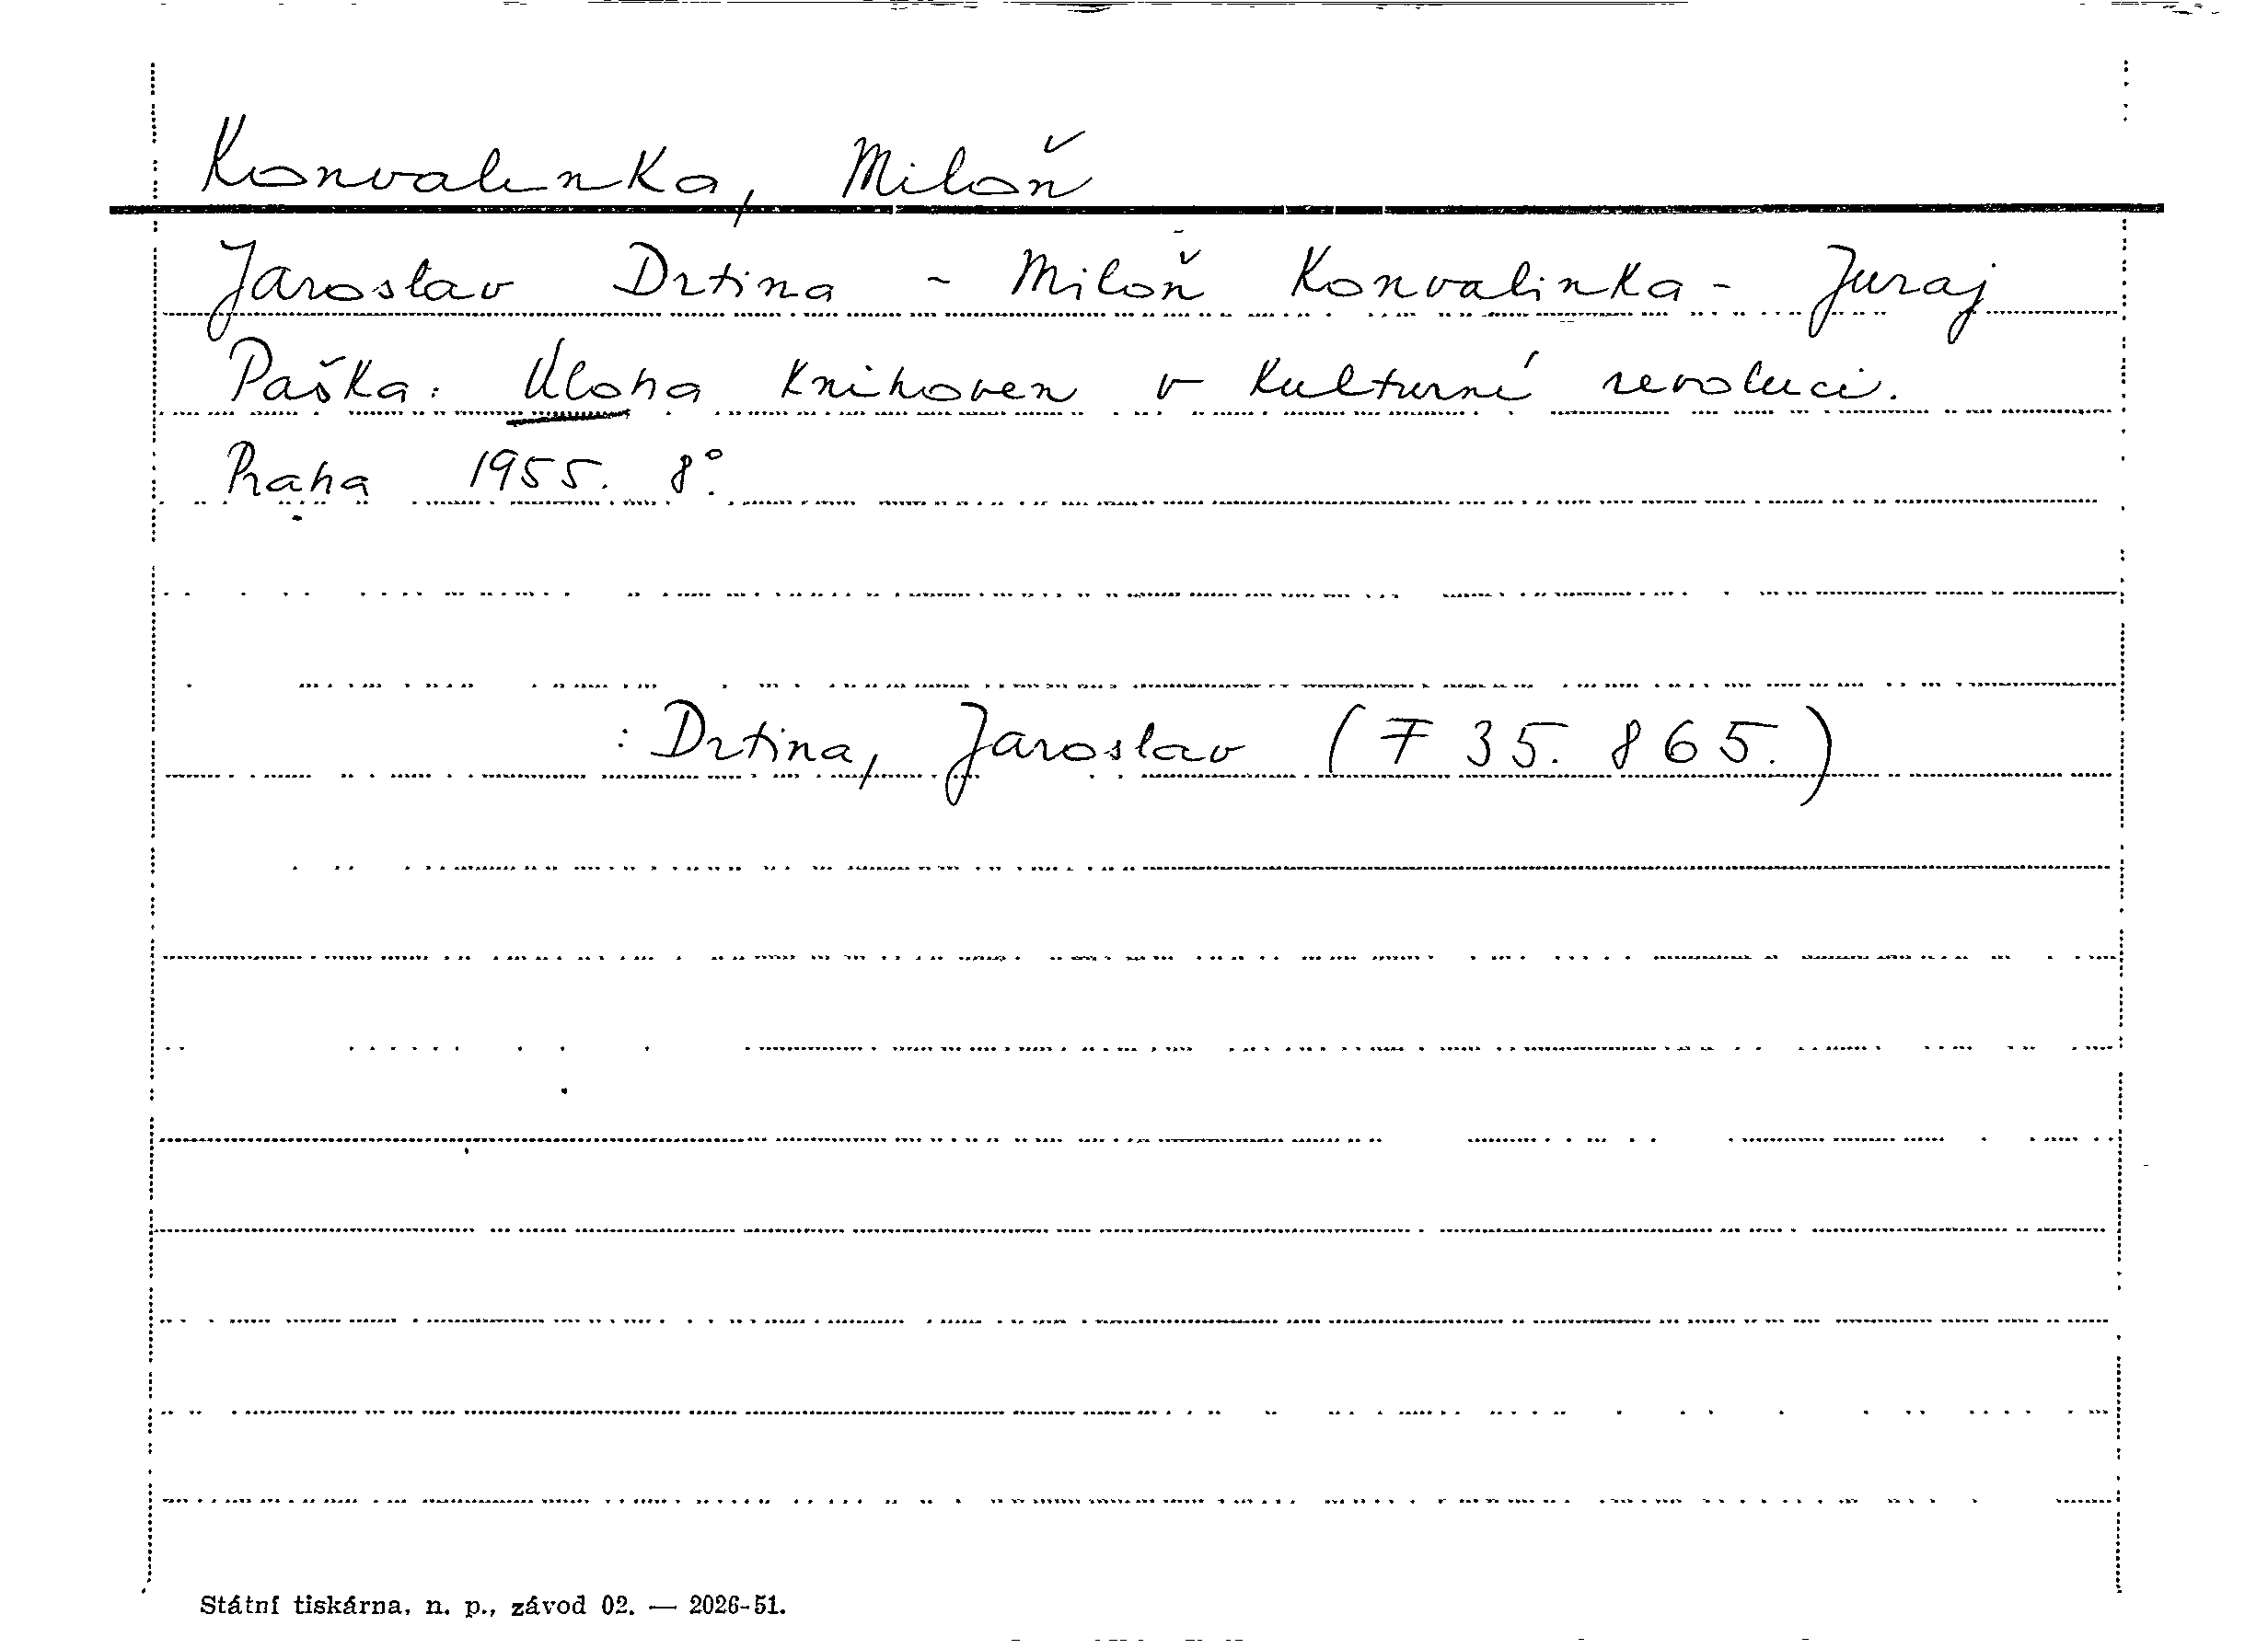 Konvalinka, Miloň
Jaroslav Drtina - Miloň Konvalinka - Juraj
Paška: Uloha knihoven v kulturní revoluci.
Praha 1955. 8°.
: Drtina, Jaroslav (F 35. 865.)
Státní tiskárna, n. p., závod 02. — 2026-51.